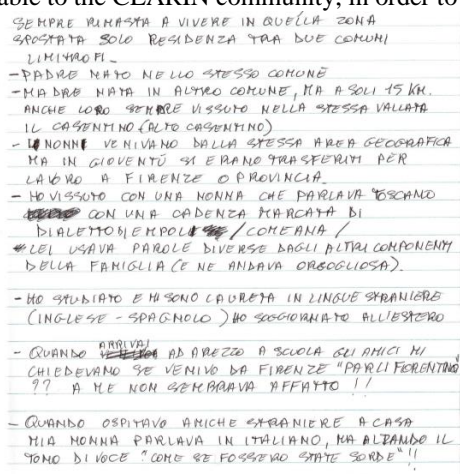 able to the CLARIN community, in order to
SEMPRE RIMASTA A VIVERE IN QUELLA ZONA
SPOSTATA SOLO RESIDENZA TRA DUE COMUNI
LIMITROFI_
- PADRE NATO NELLO STESSO COMUNE
- MADRE NATA IN ALTRO COMUNE, MA A SOLI 15 KM.
ANCHE LORO SEMPRE VISSUTO NELLA STESSA VALLATA
IL CASENTINO (ALTO CASENTINO)
- I NONNI VENIVANO DALLA STESSA AREA GEOGRAFICA
MA IN GIOVENTÙ SI ERANO TRASFERITI PER
LAVORO A FIRENZE O PROVINCIA_
- HO VISSUTO CON UNA NONNA CHE PARLAVA TOSCANO
CON UNA CADENZA MARCATA DI
DIALETTO DI EMPOLI / COMEANA /
LEI USAVA PAROLE DIVERSE DAGLI ALTRI COMPONENTI
DELLA FAMIGLIA (E NE ANDAVA ORGOGLIOSA).
- HO STUDIATO E MI SONO LAURETA IN LINGUE STRANIERE
(INGLESE - SPAGNOLO) HO SOGGIORNATO ALL'ESTERO
- QUANDO ARRIVAI AD AREZZO A SCUOLA GLI AMICI MI
CHIEDEVANO SE VENIVO DA FIRENZE "PARLI FIORENTINO"
?? A ME NON SEMBRAVA AFFATTO !!
- QUANDO OSPITAVO AMICHE STRANIERE A CASA
MIA NONNA PARLAVA IN ITALIANO, MA ALZANDO IL
TONO DI VOCE "COME SE FOSSERO STATE SORDE"!!